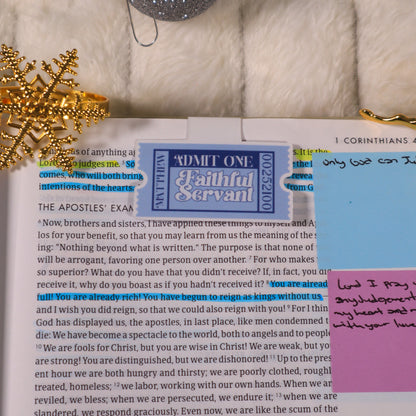 1 CORINTHIANS 4
of anything
It is the
Lord who judges me. ⁵
comes, who will both bring
intentions of the hearts.
from God.
ADMIT ONE
MATTHEW
Faithful
Servant
00252100
only God can
THE APOSTLES' EXA
⁶Now, brothers and sisters, I have applied these things to myself and Ap
los for your benefit, so that you may learn from us the meaning of the s
ing: "Nothing beyond what is written." The purpose is that none of
will be arrogant, favoring one person over another. ⁷For who makes
so superior? What do you have that you didn't receive? If, in fact, you did
receive it, why do you boast as if you hadn't received it? ⁸You are alread
full! You are already rich! You have begun to reign as kings without us,
and I wish you did reign, so that we could also reign with you! ⁹For I thin
God has displayed us, the apostles, in last place, like men condemned t
die: We have become a spectacle to the world, both to angels and to people
¹⁰We are fools for Christ, but you are wise in Christ! We are weak, but you
are strong! You are distinguished, but we are dishonored! ¹¹Up to the pres
ent hour we are both hungry and thirsty; we are poorly clothed, roughly
treated, homeless; ¹²we labor, working with our own hands. When we are
reviled, we bless; when we are persecuted, we endure it; ¹³when we are
slandered, we respond graciously. Even now, we are like the scum of the
Lord I pray
my heart and
with your